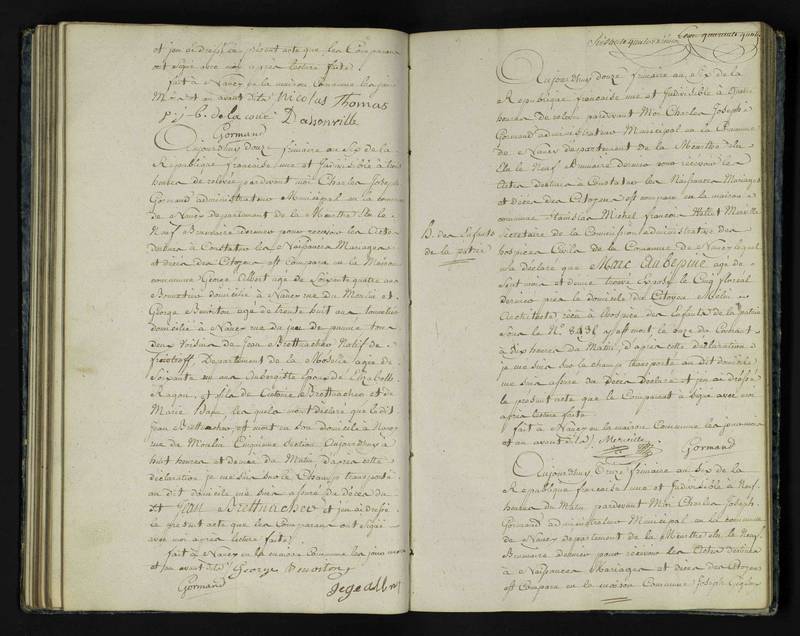 et j'en ai dressé ce présent acte que les Comparans
ont signé avec moi après lecture faite.
fait à Nancy en la maison Commune les jour
Mois et an avant dits Nicolas Thomas
p. j-b. de la cour Dassonville
Gormand
Aujourdhuy Douze frimaire an Six de la
République française une et Indivisible à
heures de relevée pardevant moi Charles Joseph
Gormand administrateur Municipal en la commune
de Nancy département de la Meurthe élu le
Neuf Brumaire dernier pour recevoir les Actes
Destinés à Constater les Naissances Mariages
et décès des Citoyens est Comparu en la Maison
commune George Albert agé de Soixante quatre ans
domicilié à Nancy rue du Moulin et
George agé de trente huit ans tonnelier
domicilié à Nancy rue du jeu de paume tous
deux Voisins de Jean Brettnacher Natif de
Département de la Moselle agé de
Soixante un ans Epoux de Elizabeth
et fils de Brettnacher et de
Marie lesquels m'ont déclaré que ledit
Jean Brettnacher est mort en son domicile à Nancy
rue du Moulin Cinquième Section Aujourdhuy à
huit heures et demie du Matin d'après cette
déclaration je me suis sur le Champ transporté
au dit domicile me suis assuré du décès du
dit Jean Brettnacher et j'en ai dressé
le présent acte que les Comparans ont signé
avec moi après lecture faite.
fait à Nancy en la maison Commune les jour mois
et an avant dits George
Gormand
Aujourdhuy douze frimaire an Six de la
République française une et Indivisible à quatre
heures de relevée pardevant Moi Charles Joseph
Gormand administrateur Municipal en la Commune
de Nancy département de la Meurthe élu
le Neuf Brumaire dernier pour recevoir les
Actes destinés à Constater les Naissances Mariages
et décès des Citoyens est comparu en la maison
commune Stanislas Michel françois
B. des Enfants
de la patrie
Secrétaire de la Commission administrative des
hospices Civils de la Commune de Nancy lequel
m'a déclaré que Marc Aubepine agé de
Sept mois et demie trouvé Exposé le Cinq floréal
dernier près le domicile du Citoyen Melin
Architecte, reçu à l'hospice des Enfants de la patrie
Sous le N°. est mort le onze du Courant
à dix heures du Matin, d'après cette déclaration
je me suis sur le champ transporté au dit domicile
me suis assuré du décès déclaré et j'en ai dressé
le présent acte que le Comparant a signé avec moi
après lecture faite.
fait à Nancy en la maison Commune les jour mois
et an avant dits
Gormand
Aujourdhuy frimaire an Six de la
République française une et Indivisible à Neuf
heures du Matin pardevant Moi Charles Joseph
Gormand administrateur Municipal en la commune
de Nancy département de la Meurthe élu le Neuf
Brumaire dernier pour recevoir les Actes destinés
à Naissances Mariages et décès des Citoyens
est Comparu en la maison Commune Joseph